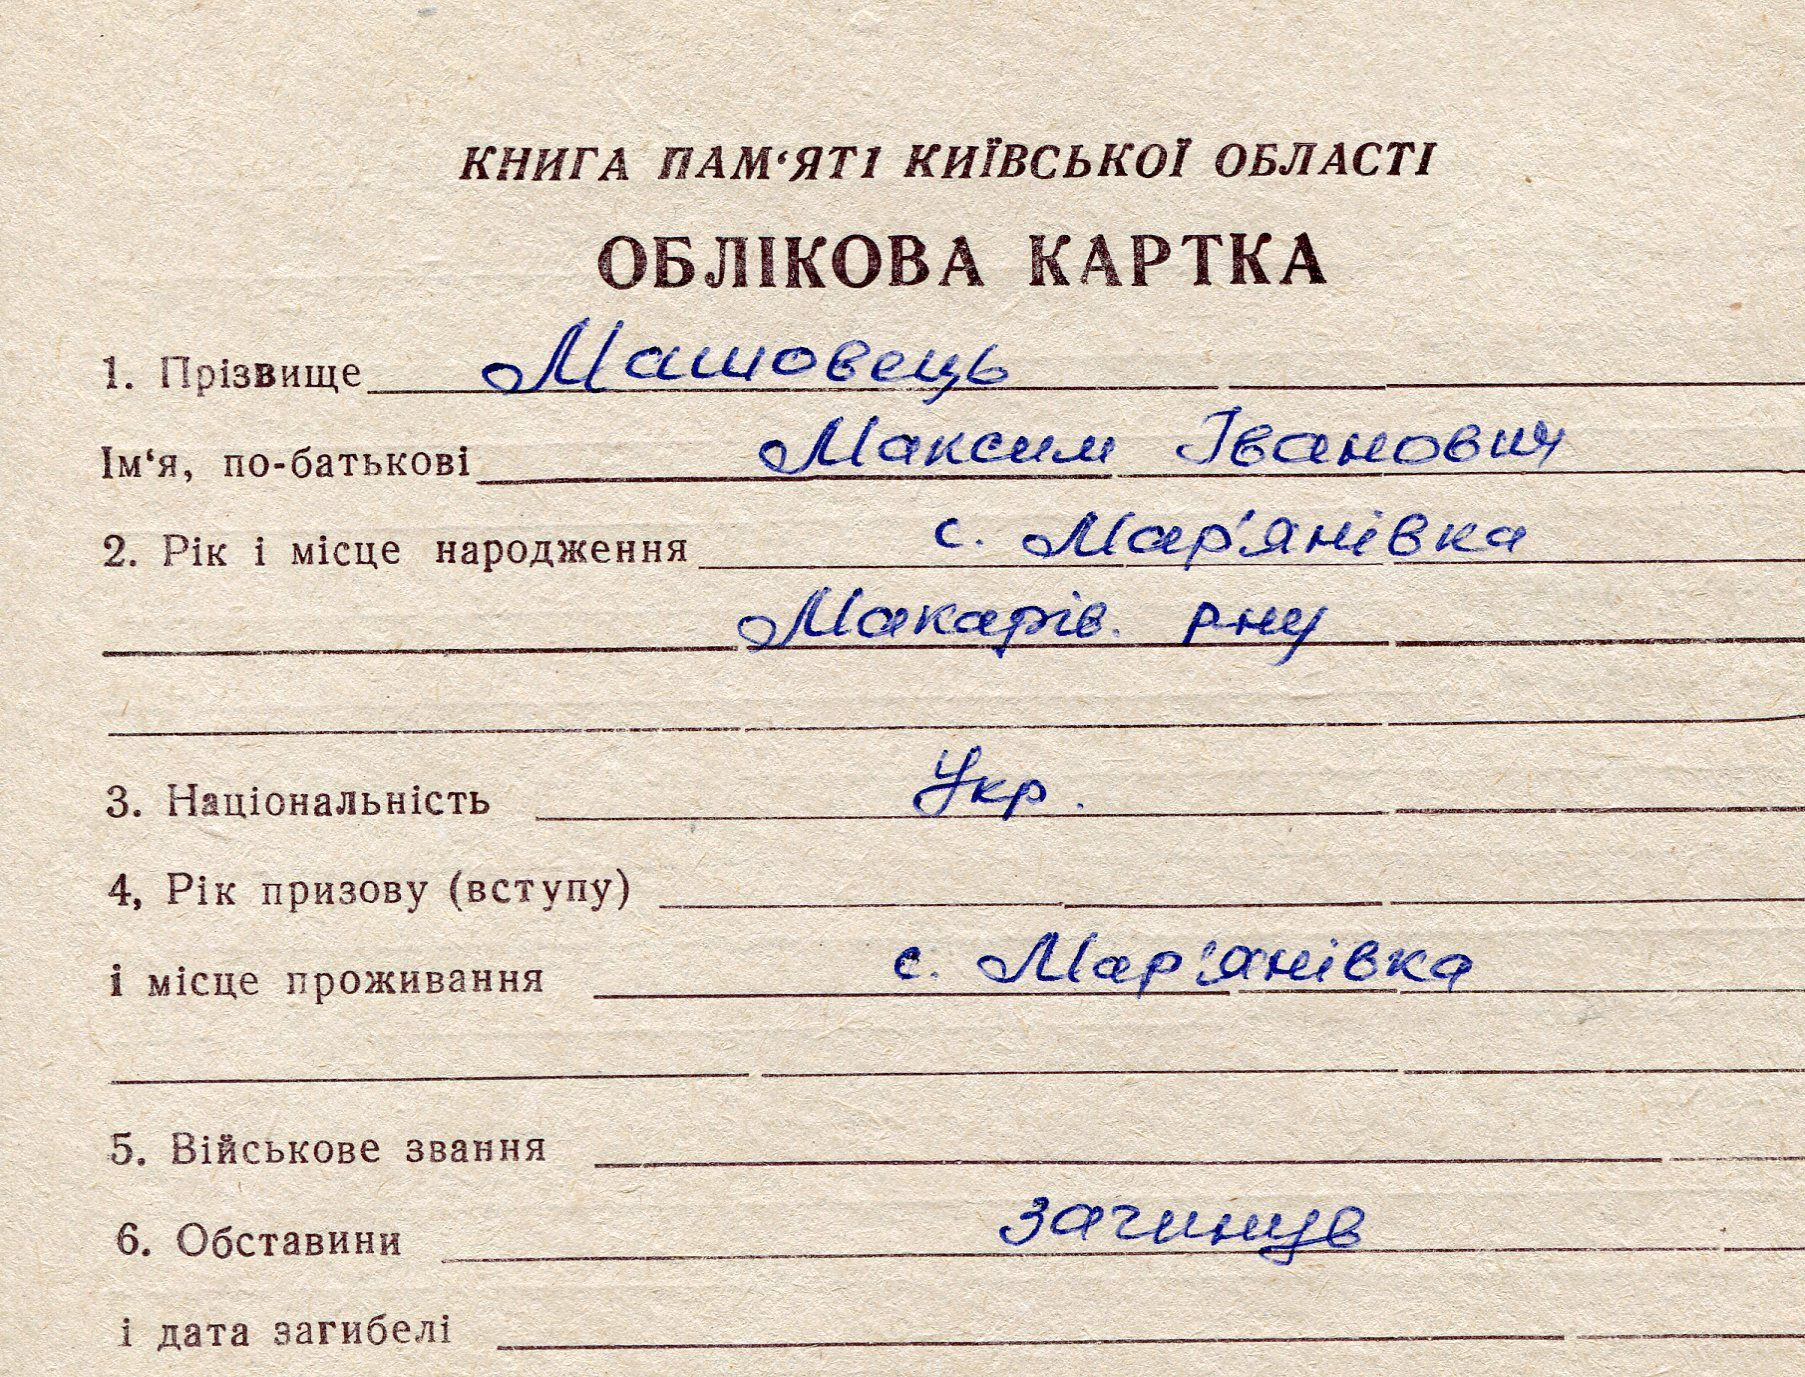 КНИГА ПАМ‘ЯТІ КИЇВСЬКОЇ ОБЛАСТІ
ОБЛІКОВА КАРТКА
1. Прізвище Машовець
Ім‘я, по-батькові Максим Іванович
2. Рік і місце народження с. Мар'янівка
Макарів. р-ну
3. Національність Укр.
4, Рік призову (вступу)
і місце проживання с. Мар'янівка
5. Військове звання
6. Обставини загинув
і дата загибелі